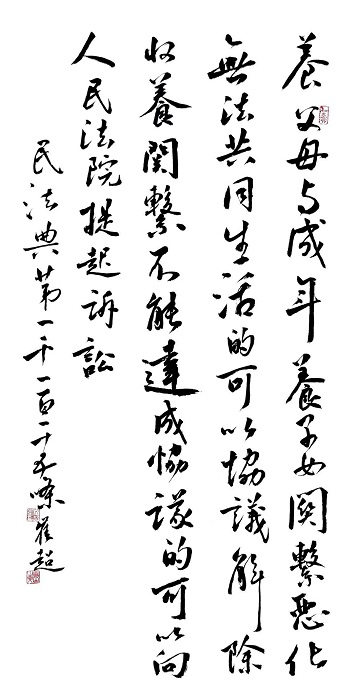 養父母与成年養子女関繫惡化
無法共同生活的可以協議解除
收養関繫不能達成協議的可以向
人民法院提起訴訟
民法典第一千一百一十五條 崔超